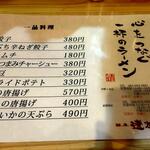 心をつなぐ
一杯のラーメン
一品料理
餃子 380円
ぶち辛ねぎ餃子 480円
キムチ 180円
おつまみチャーシュー 380円
豆 320円
フライドポテト 330円
の唐揚げ 570円
の唐揚げ 400円
いかの天ぷら 490円